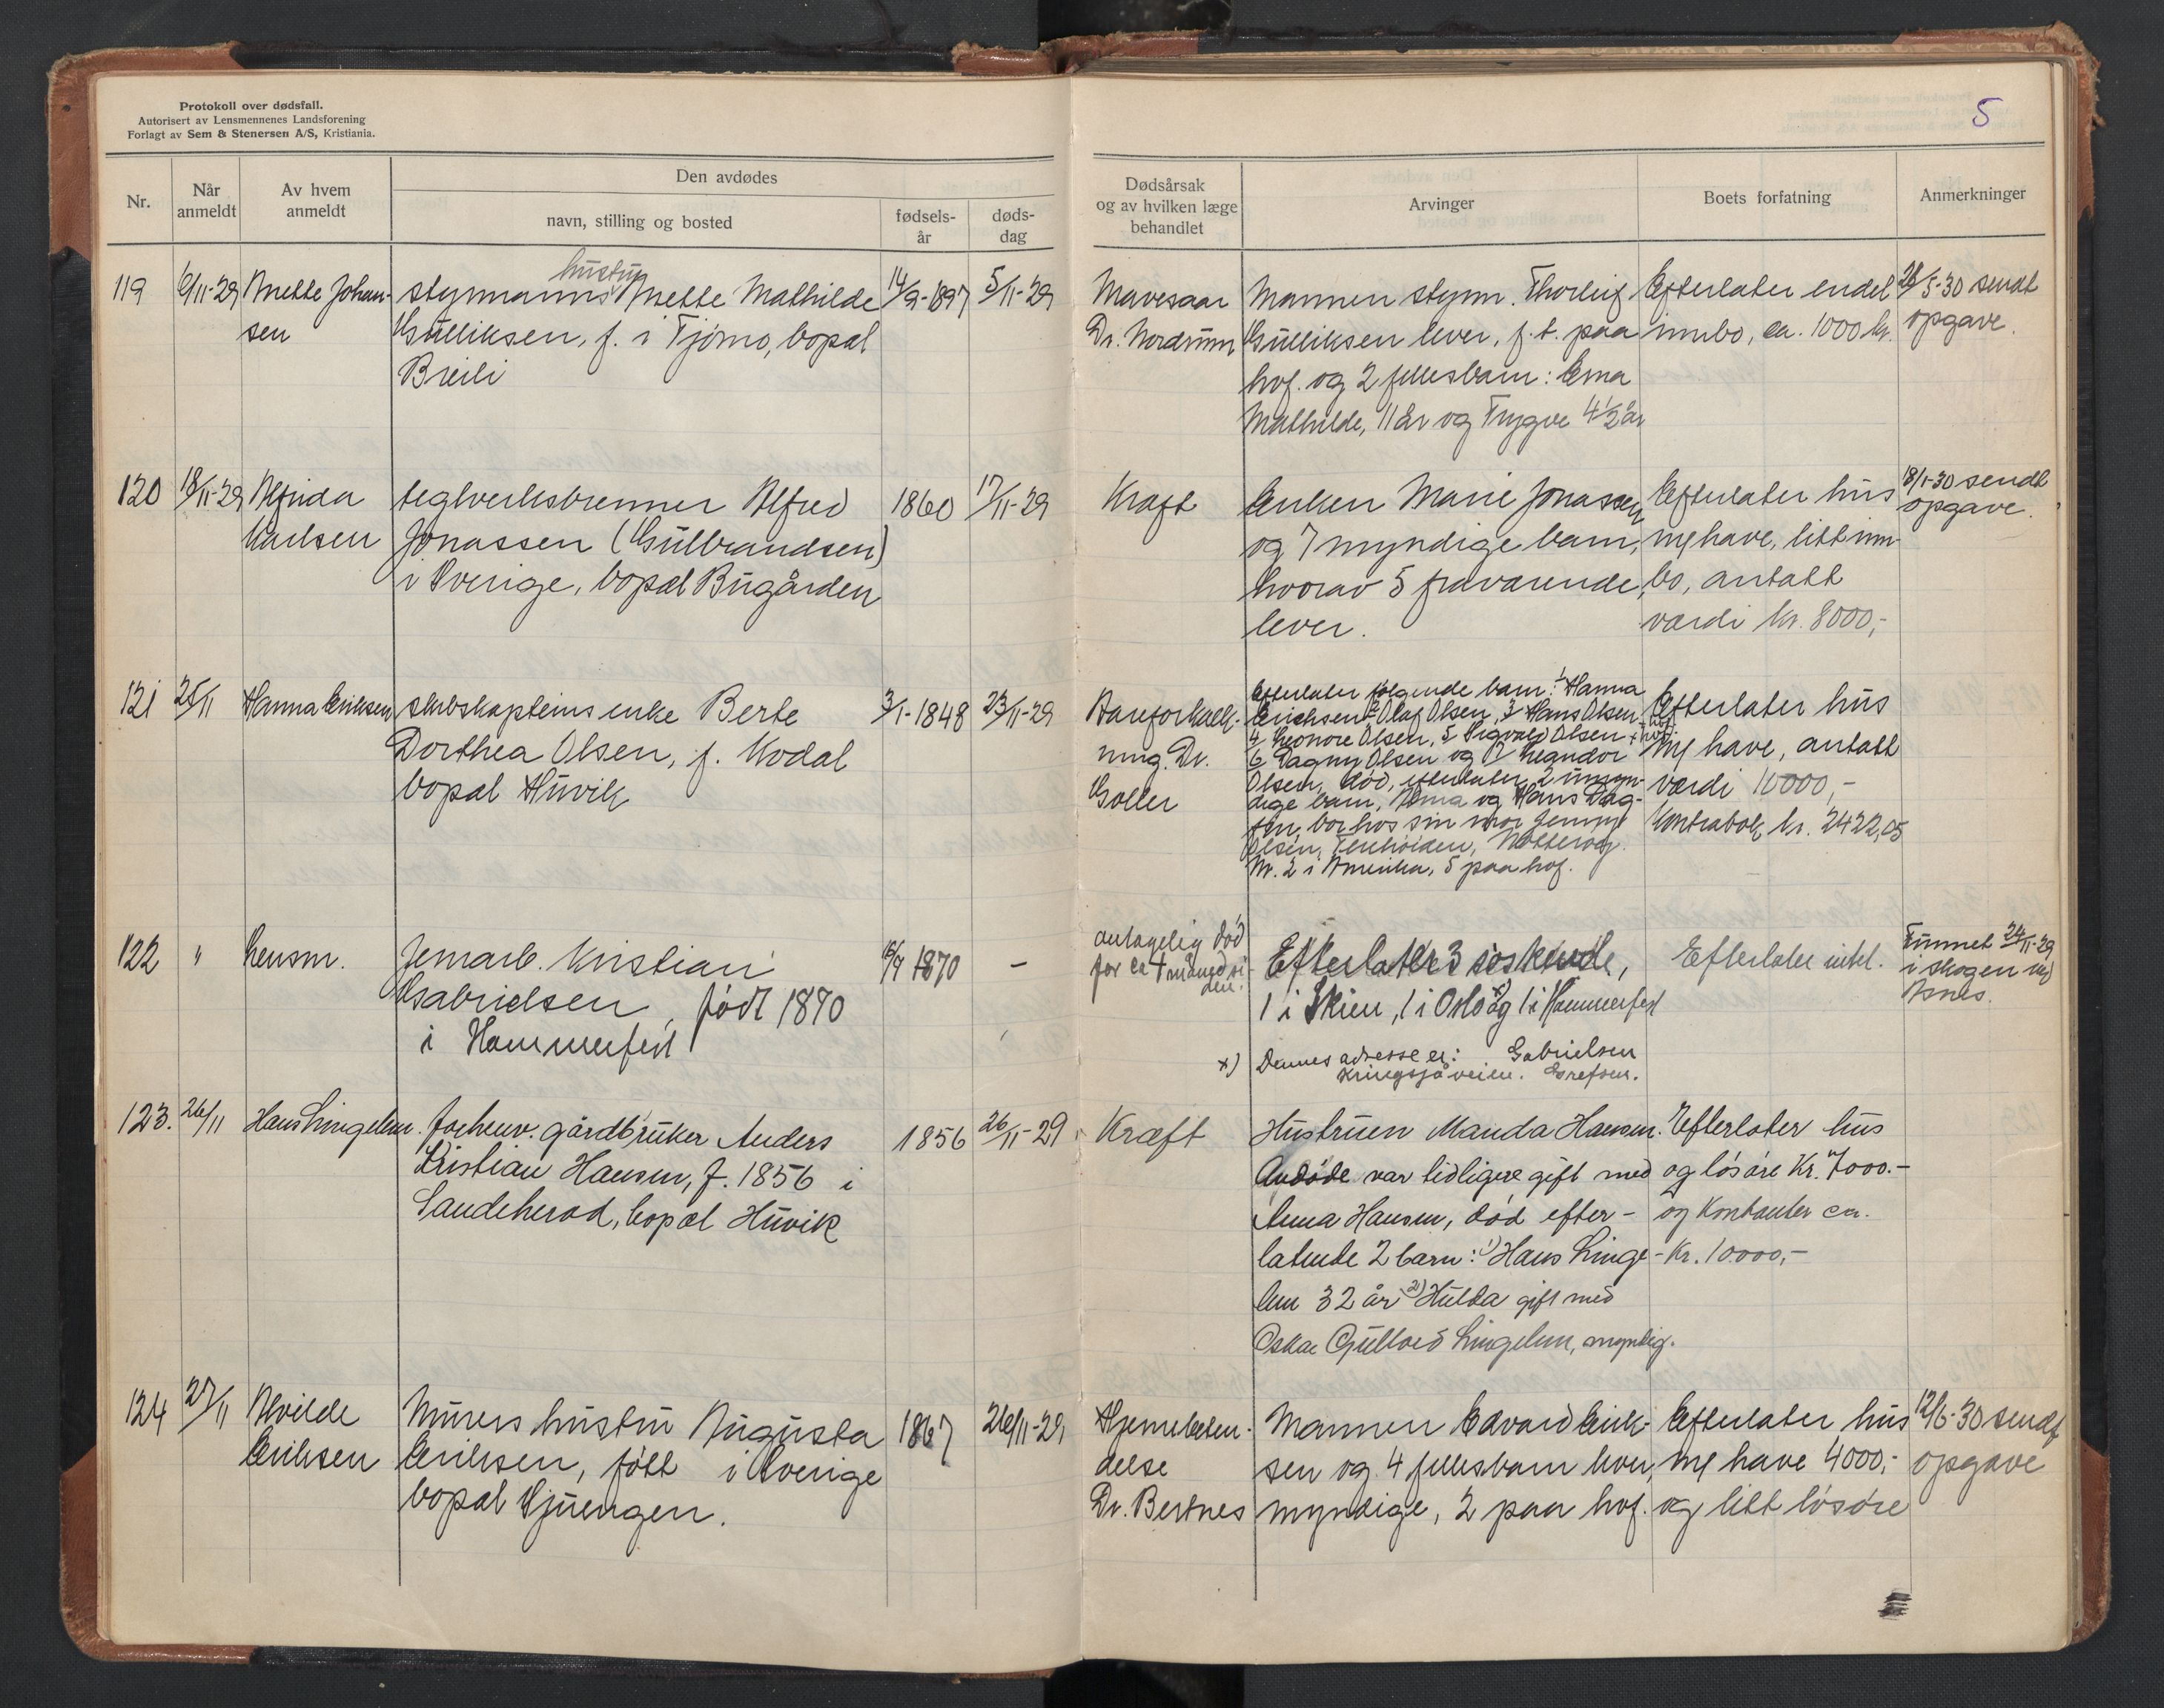 Protokoll over dødsfall.
Autorisert av Lensmennenes Landsforening
Forlagt av Sem & Stenersen A/S, Kristiania.
5
Nr.
Når anmeldt
Av hvem anmeldt
Den avdødes
navn, stilling og bosted
fødsels-år
døds-dag
Dødsårsak og av hvilken læge behandlet
Arvinger
Boets forfatning
Anmerkninger
119
6/11-29
Anette Johan-
sen
hustru
styrmanns Anette Mathilde
Gulliksen, f. i Tjömo, bopæl
Breili
14/9-1897
5/11-29
Mavesaar
Dr. Nordrum
Mannen styrm. Thorleif
Gulliksen lever, f.t. paa
hvf. og 2 fellesbarn: Erna
Mathilde, 11 år og Trygve 4 1/2 år
Efterlater endel
innbo, ca. 1000 kr.
28/5-30 sendt
opgave.
120
18/11-29
Alfrida
Karlsen
teglverksbrenner Alfred
Jonassen (Gulbrandsen)
i Sverige, bopæl Bugården
1860
17/11-29
Kræft
Enken Marie Jonassen
og 7 myndige barn,
hvorav 5 fraværende,
lever.
Efterlater hus
m/ have, litt inn-
bo, antatt
værdi kr. 8000,-
18/1-30 sendt
opgave.
121
25/11
Hanna Eriksen
skibskapteins enke Berte
Dorthea Olsen, f. Kodal
bopæl Huvik
3/1-1848
23/11-29
Aareforkalk-
ning. Dr.
Goller
Efterlater følgende barn: 1 Hanna
Erichsen 2 Olaf Olsen, 3 Hans Olsen
4 Leonore Olsen, 5 Sigvald Olsen
6 Dagny Olsen og
Olsen, död, efterlater 2 umyn-
dige barn, og Hans Dag-
fin, bor hos sin mor Jenny
Olsen, Nötteröy.
Nr. 2 i Amerika, 5 paa hvf.
Efterlater hus
m/ have, antatt
værdi 10000,-
Kontrabok kr. 2422,05
122
"
Lensm.
Jernarb. Kristian
Gabrielsen, född 1870
i Hammerfest
1870
-
antagelig död
for ca 1 måned si-
den.
Efterlater 3 söskende,
1 i Skien, 1 i Oslo x) og 1 i Hammerfest
x) Dennes adresse er: Gabrielsen
Kringsjåveien. Grefsen.
Efterlater intet.
Funnet 24/11-29
i skogen ved
Asnes.
123.
26/11
Hans Lingelem.
forhenv. gårdbruker Anders
Kristian Hansen, f. 1856 i
Sandeherad, bopæl Huvik
1856
26/11-29
Kræft
Hustruen Manda Hansen.
Avdöde var tidligere gift med
Anna Hansen, död efter-
latende 2 barn: 1) Hans Linge-
lem 32 år 2) Hulda gift med
Oskar Gullord Lingelem, myndig.
Efterlater hus
og lösöre Kr. 7000.-
og Kontanter ca.
Kr. 10000,-
124
27/11
Alvilde
Eriksen
Murers hustru Augusta
Eriksen, fött i Sverige
bopæl Hjuengen.
1867
26/11-29
Hjernebeten-
delse
Dr. Bertnes
Mannen Edvard Erik-
sen og 4 fellesbarn lever,
myndige, 2 paa hvf.
Efterlater hus
m/ have 4000,-
og litt lösöre
12/6-30 sendt
opgave